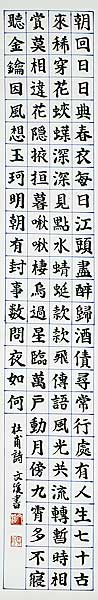 朝回日日典春衣每日江頭盡醉歸酒債尋常行處有人生七十古
來稀穿花蛺蝶深深見點水蜻蜓款款飛傳語風光共流轉暫時相
賞莫相違花隱掖垣暮啾啾棲鳥過星臨萬戶動月傍九霄多不寢
聽金鑰因風想玉珂明朝有封事數問夜如何
杜甫詩 文俊書